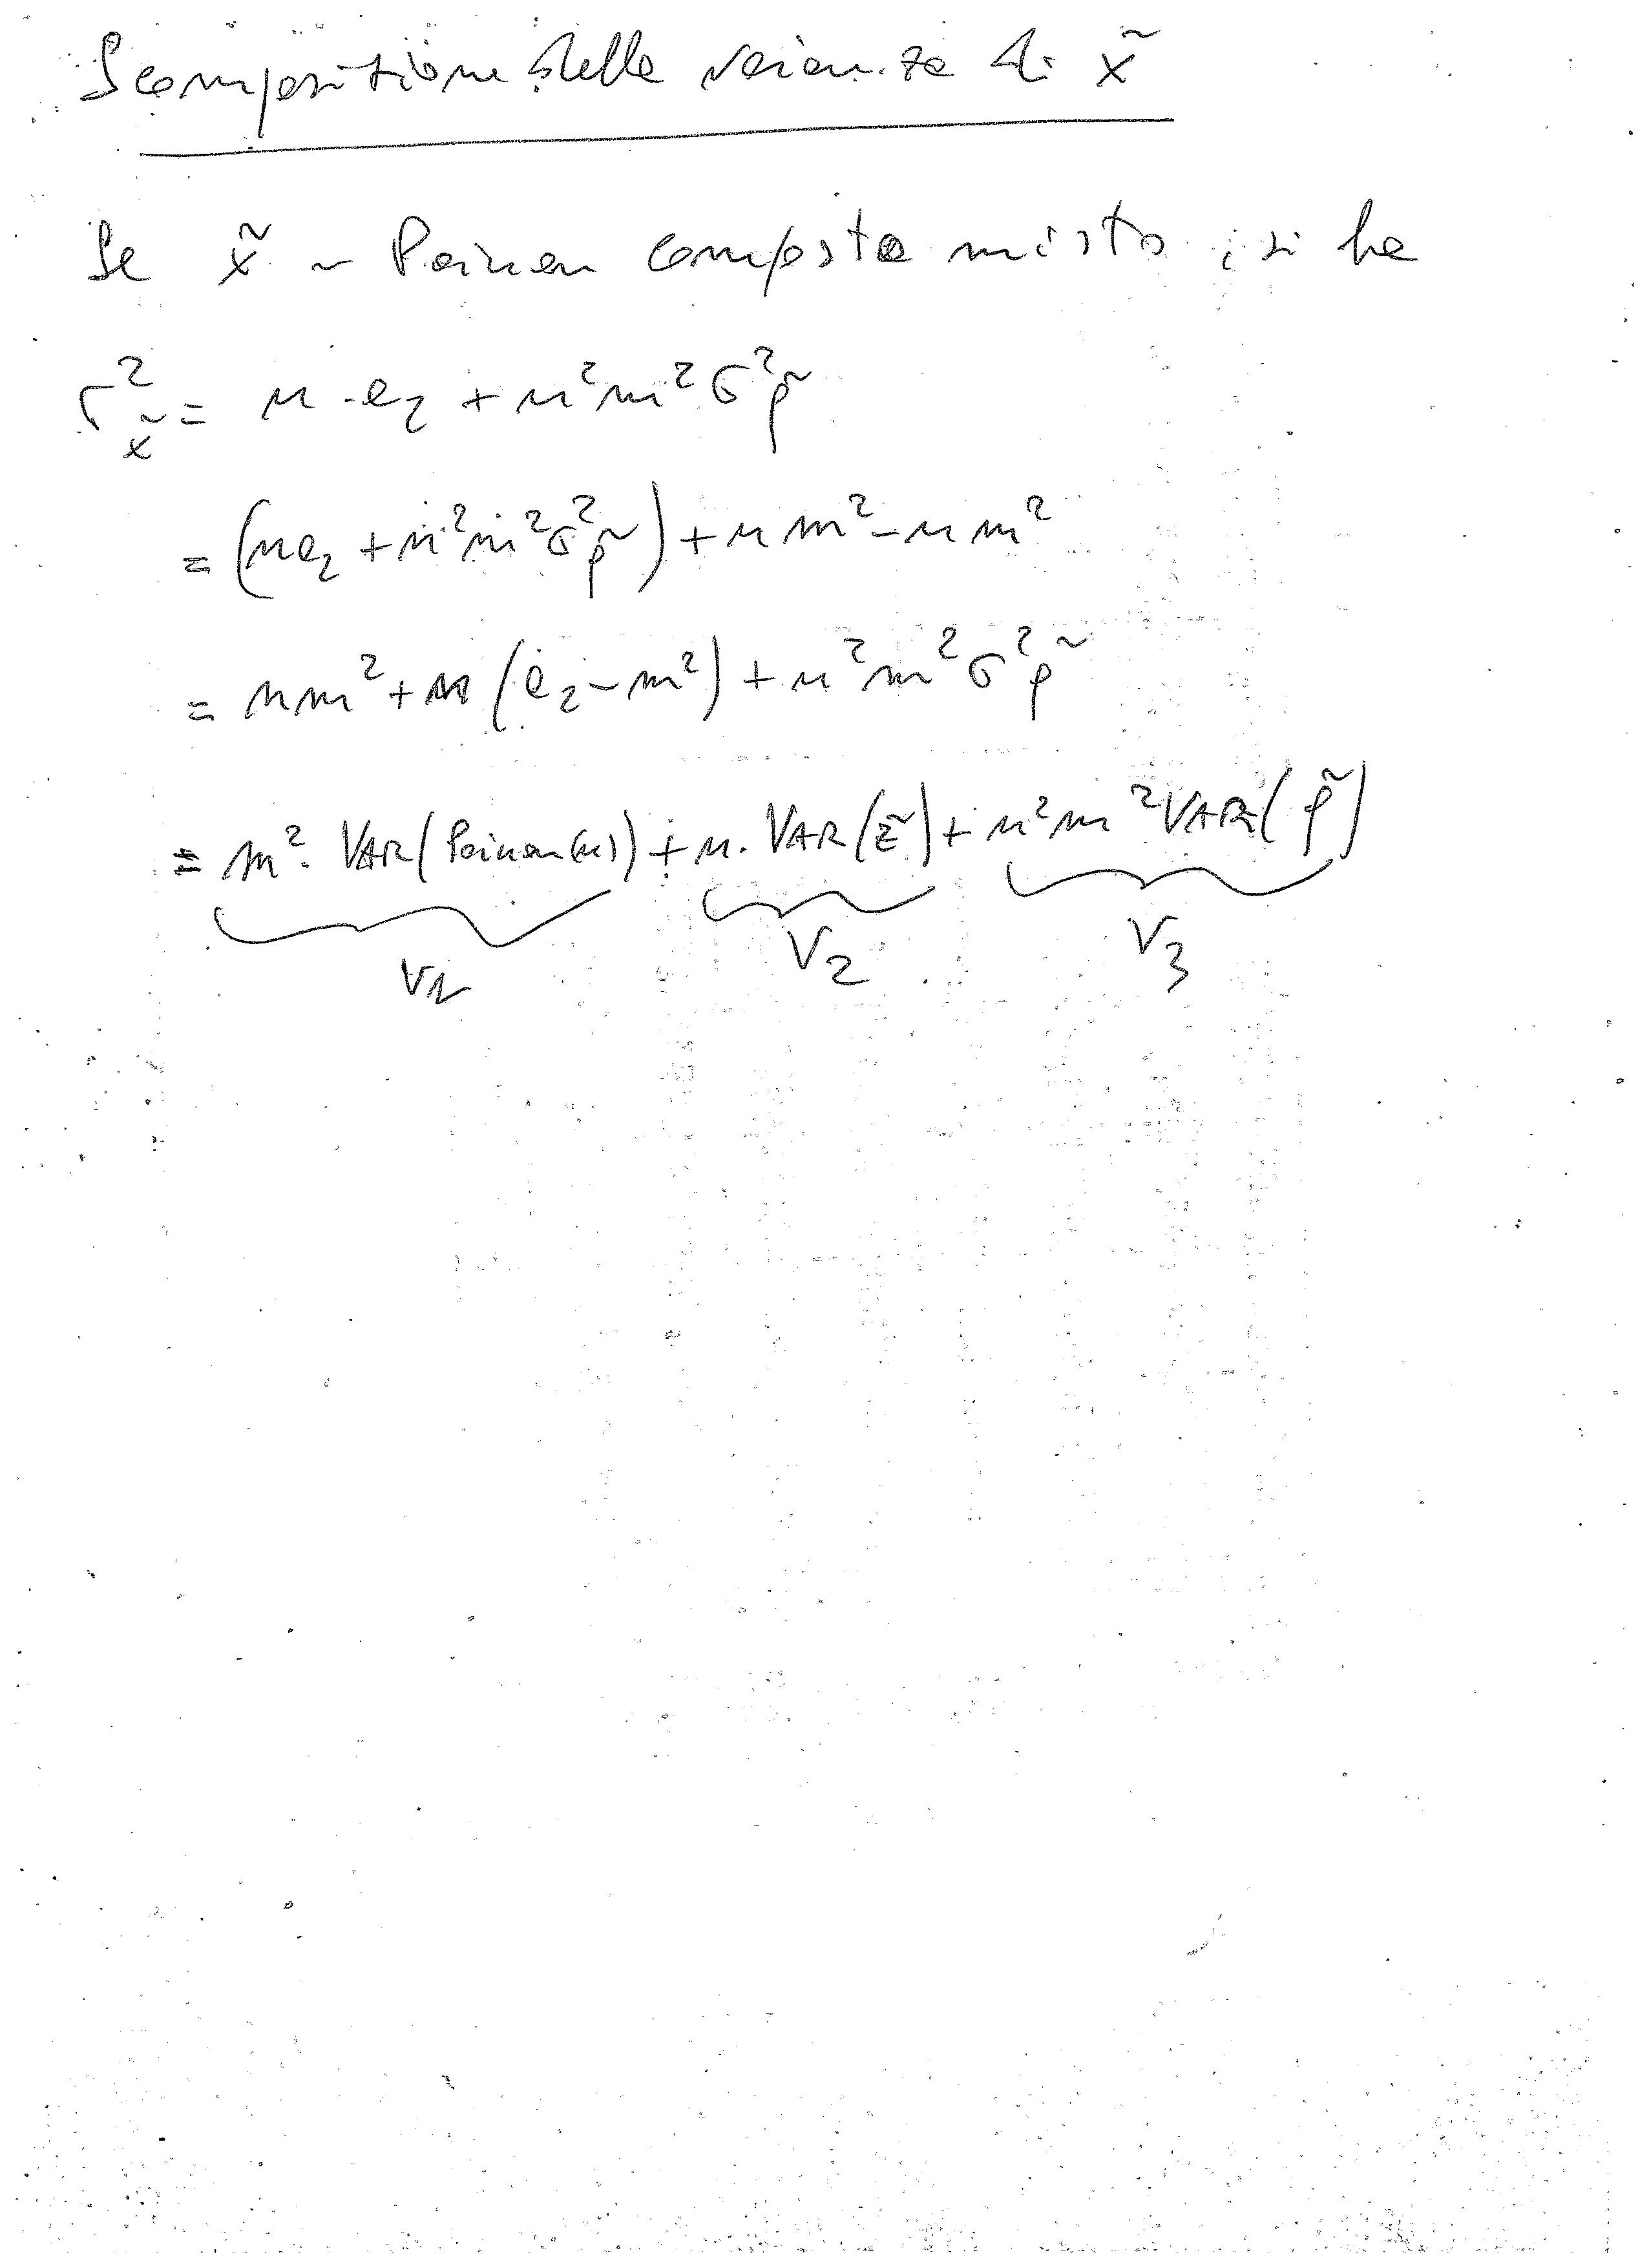 Scomposizione della varianza di x̃
Se x̃ ~ Poisson composta mista, si ha
σ²x̃ = n·a₂ + n²m²σ²ρ̃
= (na₂ + n²m²σ²ρ̃) + nm² - nm²
= nm² + n(a₂ - m²) + n²m²σ²ρ̃
= m²·VAR(Poisson(n)) + n·VAR(z̃) + n²m²VAR(ρ̃)
V1 V2 V3